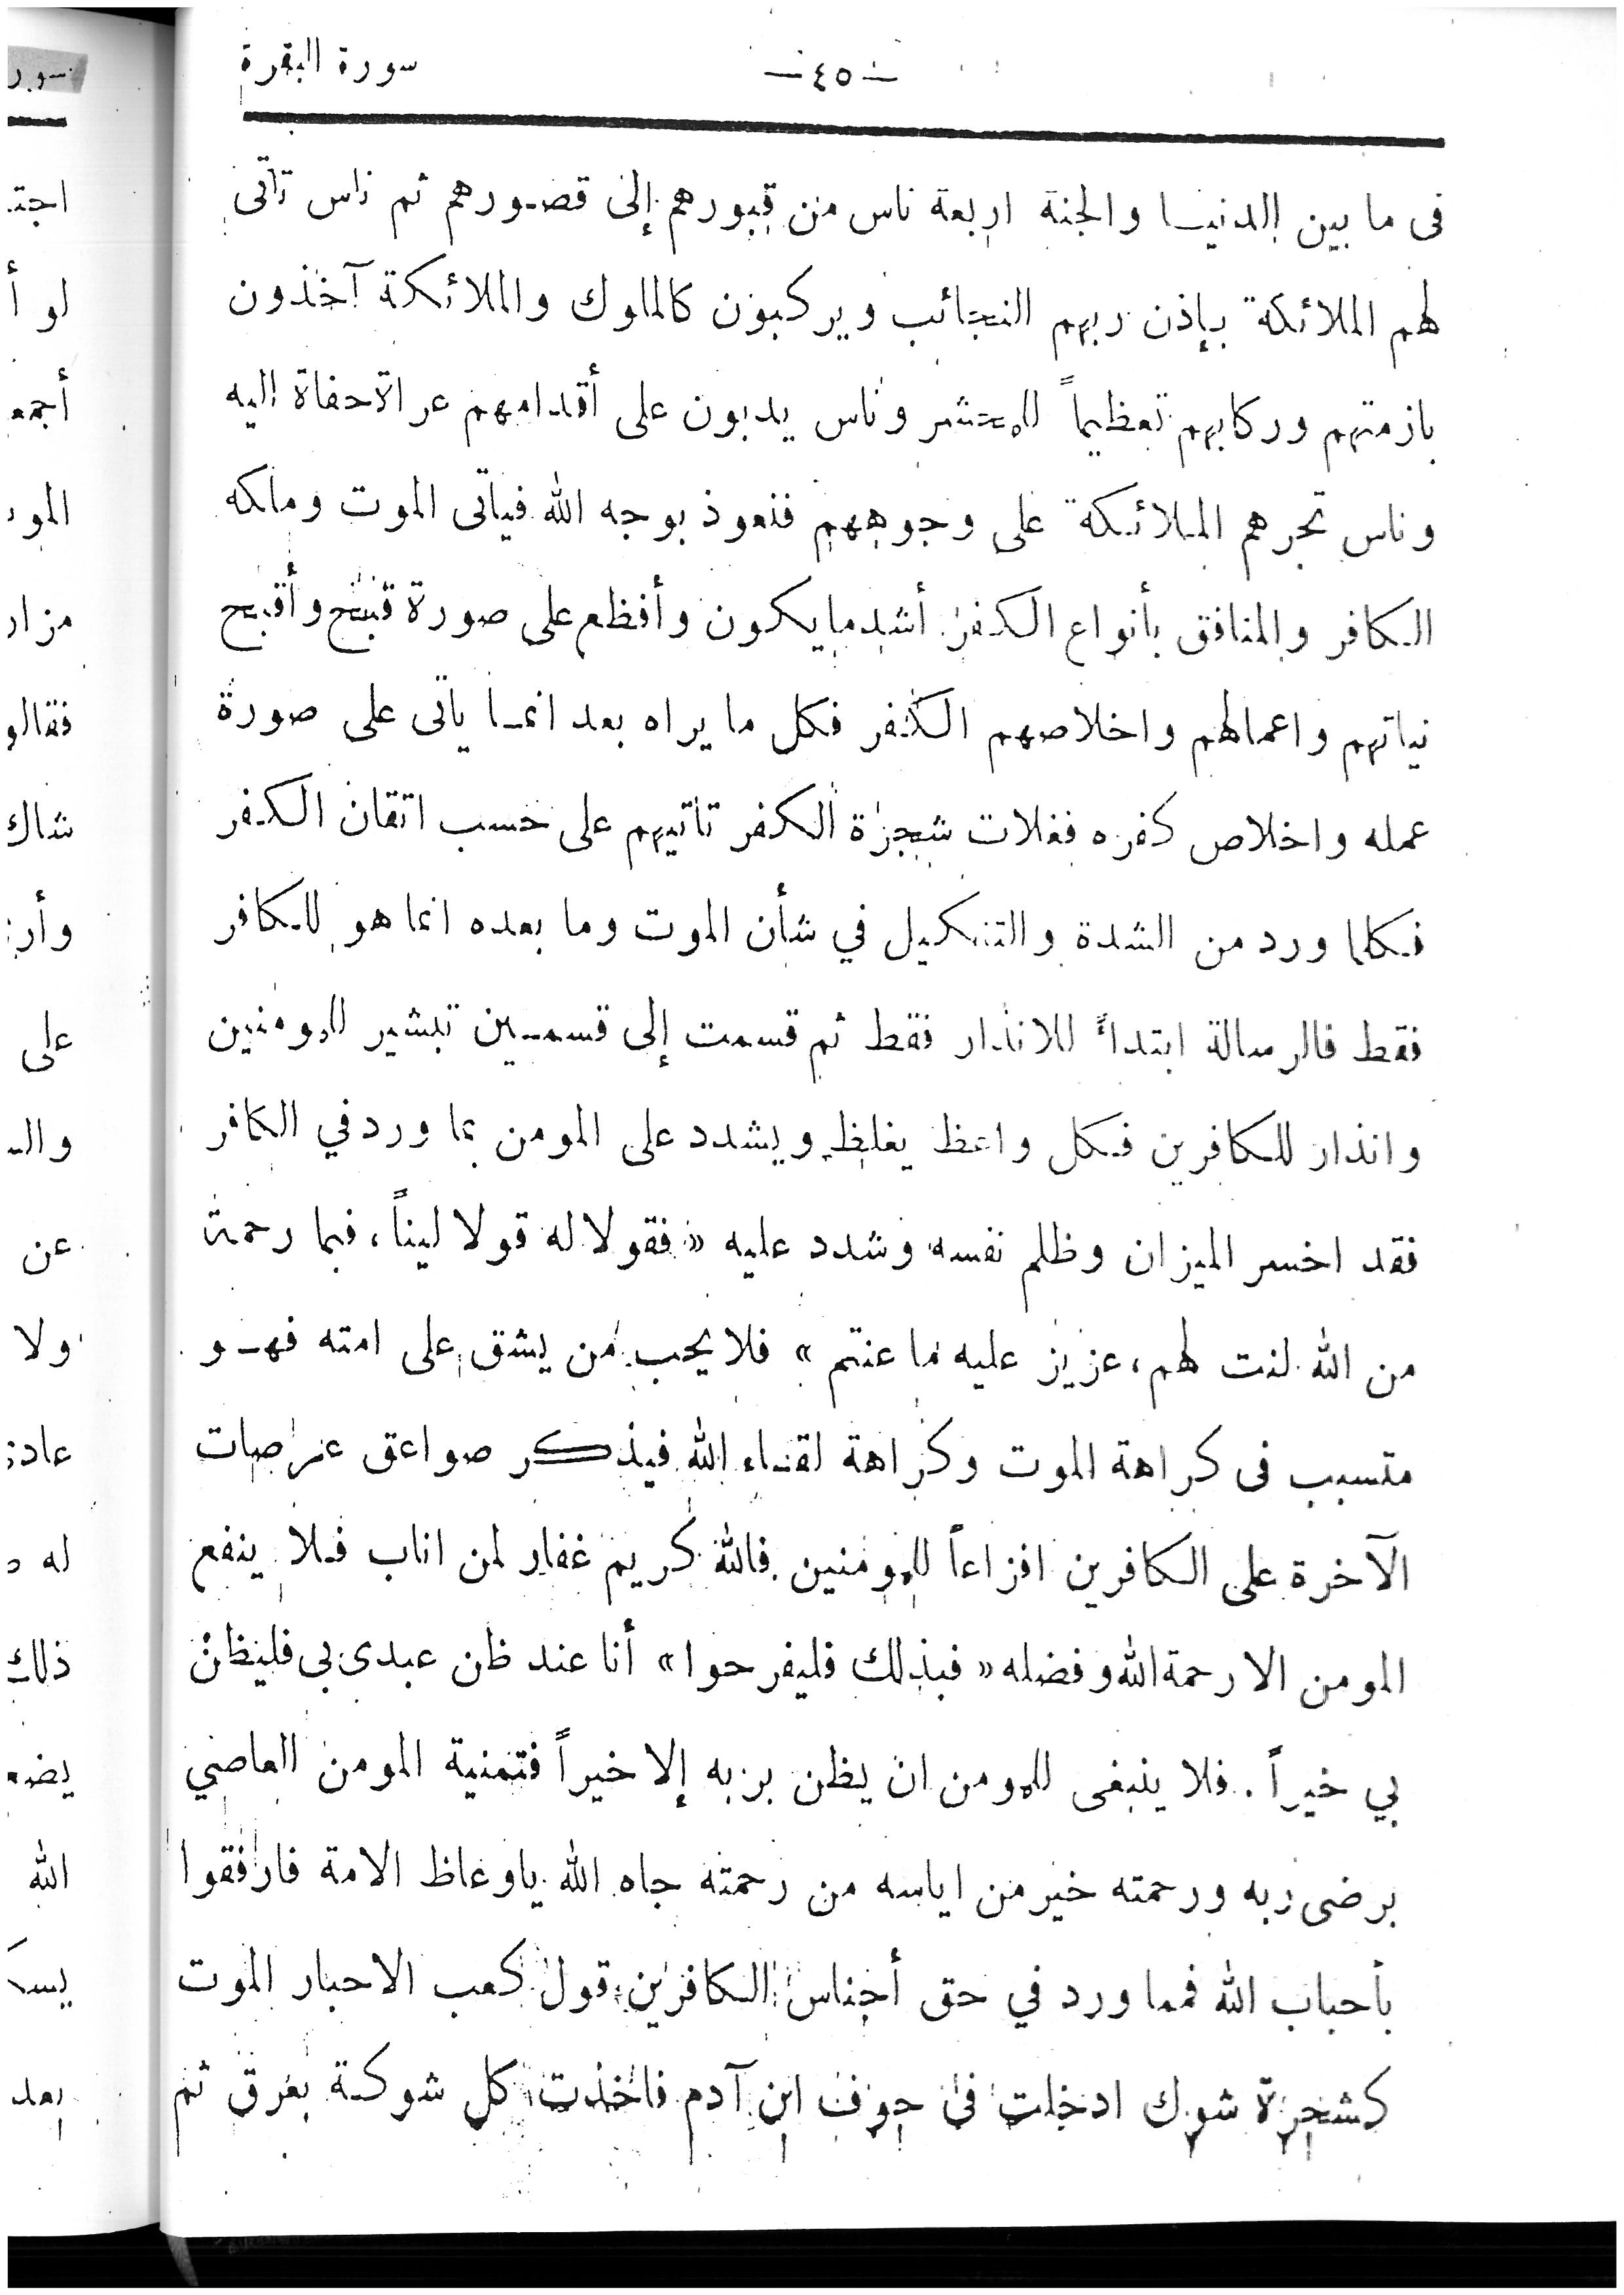 سورة البقرة
— ٤٥ —
فى ما بين الدنيا والجنة اربعة ناس من قبورهم إلى قصورهم ثم ناس تأتى
لهم الملائكة بإذن ربهم النجائب ويركبون كالملوك والملائكة آخذون
بازمتهم وركابهم تعظيماً للمحشر وناس يدبون على أقدامهم عراة حفاة اليه
وناس تجرهم الملائكة على وجوههم فنعوذ بوجه الله فيأتى الموت وملكه
الكافر والمنافق بأنواع الكفر أشد ما يكون وأفظع على صورة قبح وأقبح
نياتهم واعمالهم واخلاصهم الكفر فكل ما يراه بعد انما يأتى على صورة
عمله واخلاص كفره فغلات شجرة الكفر تأتيهم على حسب اتقان الكفر
فكلما ورد من الشدة والتنكيل في شأن الموت وما بعده انما هو للكافر
فقط فالرسالة ابتداً للانذار فقط ثم قسمت إلى قسمين تبشير للمومنين
وانذار للكافرين فكل واعظ يغلظ ويشدد على المومن بما ورد في الكافر
فقد اخسر الميزان وظلم نفسه وشدد عليه « فقولا له قولا ليناً، فبما رحمة
من الله لنت لهم، عزيز عليه ما عنتم » فلا يحب من يشق على امته فهو
متسبب فى كراهة الموت وكراهة لقاء الله فيذكر صواعق عرصات
الآخرة على الكافرين افزاعاً للمومنين فالله كريم غفار لمن اناب فلا ينفع
المومن الا رحمة الله وفضله « فبذلك فليفرحوا » أنا عند ظن عبدى بى فليظن
بي خيراً. فلا ينبغى للمومن ان يظن بربه إلا خيراً فتمنية المومن العاصي
برضى ربه ورحمته خير من اياسه من رحمته جاه الله ياوعاظ الامة فارفقوا
بأحباب الله فمما ورد في حق أجناس الكافرين قول كعب الاحبار الموت
كشجرة شوك ادخلت فى جوف ابن آدم فاخذت كل شوكة بعرق ثم